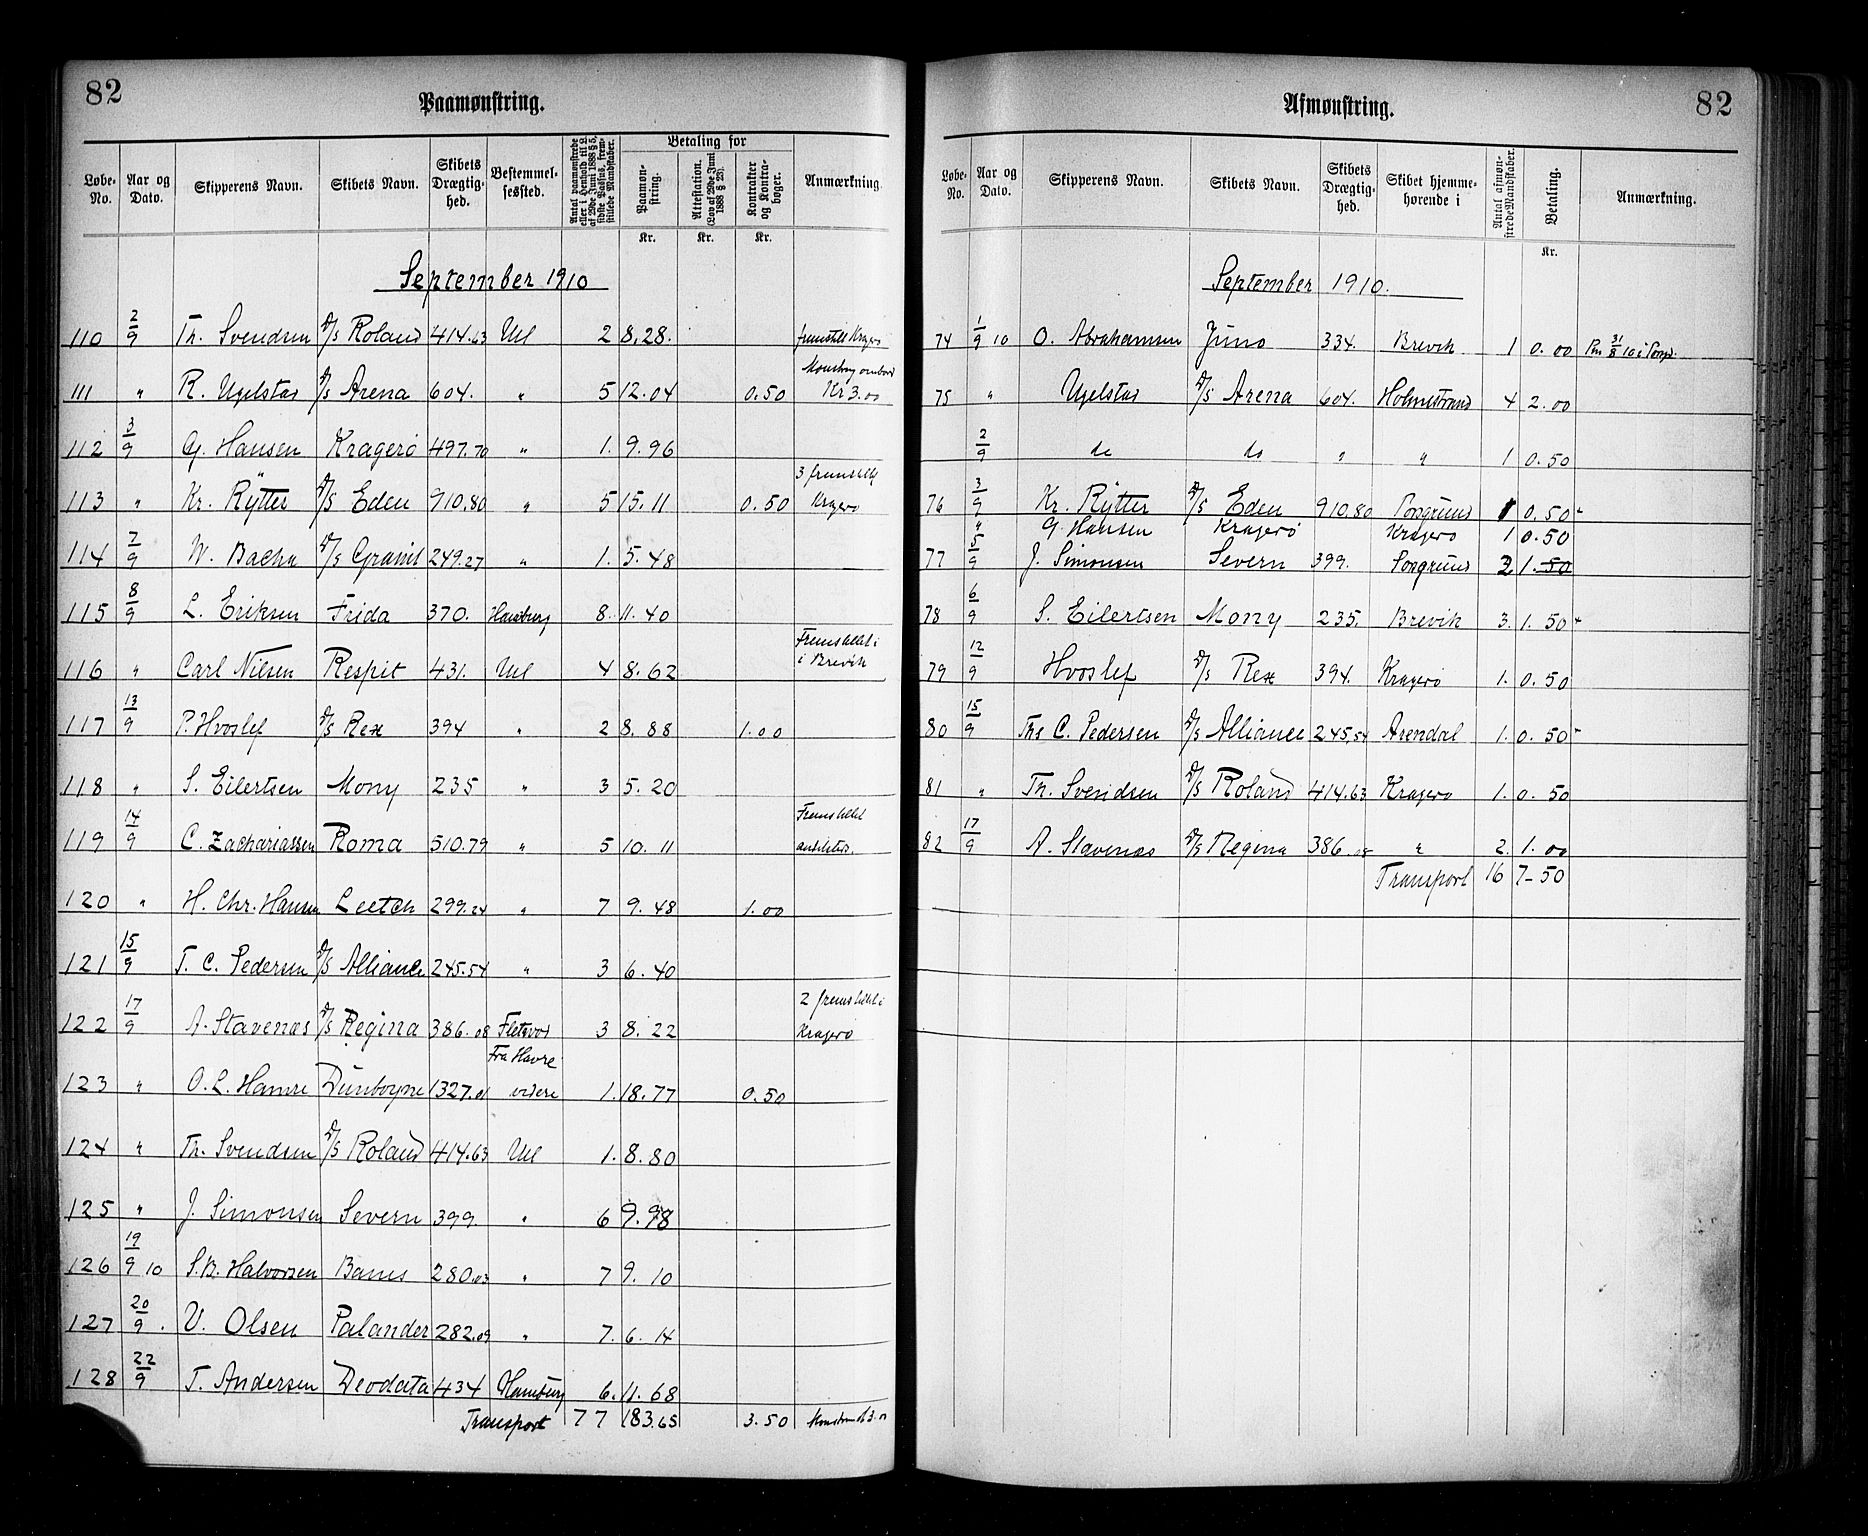 82
Paamønstring.
Løbe-No. Aar og Dato. Skipperens Navn. Skibets Navn. Skibets Drægtighed. Bestemmelsessted. Antal paamønstrede eller i Henhold til L. af 29de Juni 1888 § 5, sidste Passus, fremstillede Mandskaber. Betaling for Paamønstring. Attestation. (Lov af 29de Juni 1888 § 23). Kontrakter og Kontrabøger. Anmærkning.
Kr. Kr. Kr.
September 1910
110 2/9 Th. Svendsen D/S Roland 414.63 Utl 2 8.28. fremstillt Kragerø
Mønstring ombord
111 " R. Ugelstad D/S Arena 604. " 5 12.04 0.50 Kr 3.00
112 3/9 G. Hansen Kragerø 497.70 " 1. 9.96
3 fremstillet
113 " Kr. Rytter D/S Eden 910.80 " 5 15.11 0.50 Kragerø
114 7/9 W. Bache D/S Granit 249.27 " 1. 5.48
115 8/9 L. Eriksen Frida 370. Hamburg 8. 11.40
Fremstillet i
116 " Carl Nilsen Respit 431. Utl 4 8.62 i Brevik
117 13/9 P. Hvoslef D/S Rex 394 " 2 8.88 1.00
118 " S. Eilertsen Mony 235 " 3 5.20
Fremstillet
119 14/9 C. Zachariassen Roma 510.79 " 5 10.11 andetsted.
120 " H. Chr. Hansen Leetch 299.24 " 7 9.48 1.00
121 15/9 T. C. Pedersen D/S Alliance 245.54 " 3 6.40
2 fremstillet i
122 17/9 A. Stavenæs D/S Regina 386.08 Fletwod 3 8.22 Kragerø
Fra Havre
123 " O. L. Hamre Dunboyne 1327.01 videre 1. 18.77 0.50
124 " Th. Svendsen D/S Roland 414.63 Utl 1. 8.80
125 " J. Simonsen Severn 399. " 6 9.98
126 19/9 10 S. B. Halvorsen Bams 280.03 " 7 9.10
127 20/9. V. Olsen Palander 282.09 " 7. 6.14
128 22/9 T. Andersen Deodata 434 Hamburg 6. 11.68
Transport 77 183.65 3.50
82
Afmønstring.
Løbe-No. Aar og Dato. Skipperens Navn. Skibets Navn. Skibets Drægtighed. Skibet hjemmehørende i Antal afmønstrede Mandskaber. Betaling. Anmærkning.
Kr.
September 1910.
74 1/9 10 O. Abrahamsen Juno 334. Brevik 1 0.00
75 " Ugelstad D/S Arena 604. Holmestrand 4 2.00
2/9 do do " " 1 0.50
76 3/9 Kr. Rytter D/S Eden 910.80 Porsgrund 1 0.50
" G. Hansen Kragerø Kragerø 1 0.50
77 5/9 J. Simonsen Severn 399. Porsgrund 3 1.50
78 6/9 S. Eilertsen Mony 235. Brevik 3. 1.50
79 12/9 Hvoslef D/S Rex 394. Kragerø 1. 0.50
80 15/9 Ths C. Pedersen D/S Alliance 245.54 Arendal 1. 0.50
81 " Th. Svendsen D/S Roland 414.63 Kragerø 1. 0.50
82 17/9 A. Stavenæs D/S Regina 386.08 " 2. 1.00
Transport 16 7-50